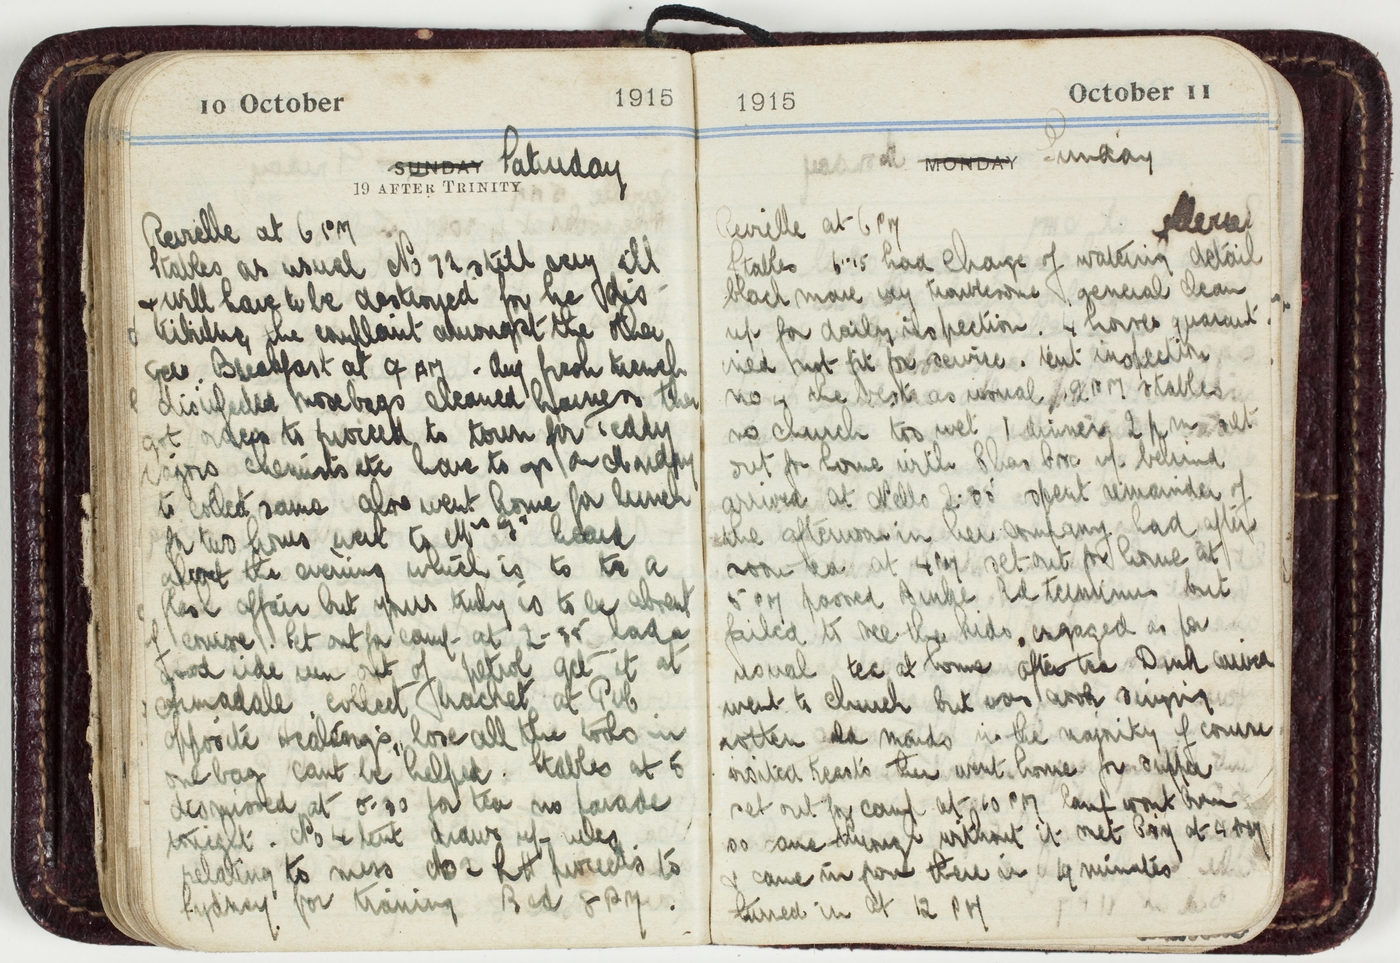 10 October 1915
SUNDAY Saturday
19 AFTER TRINITY
Revielle at 6 PM
Stables as usual No 72 still very ill
+ will have to be destroyed for he dis-
tributing the complaint amongst the other
Gees. Breakfast at 9 AM. dug fresh trench
disinfected nosebags cleaned harness then
got orders to proceed to town for
chemists etc have to go on
to collect same also went home for lunch
for two hours went to Mrs heard
about the evening which is to be a
flash affair but yours truly is to be absent
of course. Set out for camp at 2-35 had a
good ride run out of petrol get it at
armadale, collect at Pub
opposite Healing's, lose all the tools in
one bag cant be helped. Stables at 5
dismissed at 5-30 for tea no parade
tonight. No 4 tent draws up rules
relating to mess No 2 LH proceeds to
Sydney for training Bed 8 PM.
1915 October 11
MONDAY Sunday
Revielle at 6 PM
Stables 6-15 had charge of watering detail
black mare very troublesome general clean
up for daily inspection. 4 horses quarant-
ined not fit for service. tent inspection
no 4 the best as usual, 2 PM stables
no church too wet 1 dinner 2 pm set
out for home with Chas up behind
arrived at Nells 3.35 spent remainder of
the afternoon in her company had after
noon tea at 4 PM set out for home at
5 PM passed Burke Rd terminus but
failed to see the kids, engaged as per
usual tea at home after tea arrived
went to church but was singing
rotten old maids in the majority of course
visited then went home for supper
set out for camp at 10 PM lamp wont burn
so came through without it met at
& came in from there in 14 minutes
turned in at 12 PM